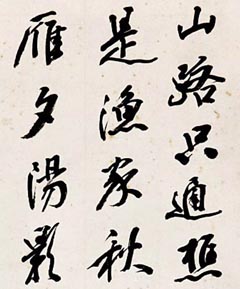 山路只通樵
是漁家秋
雁夕陽影